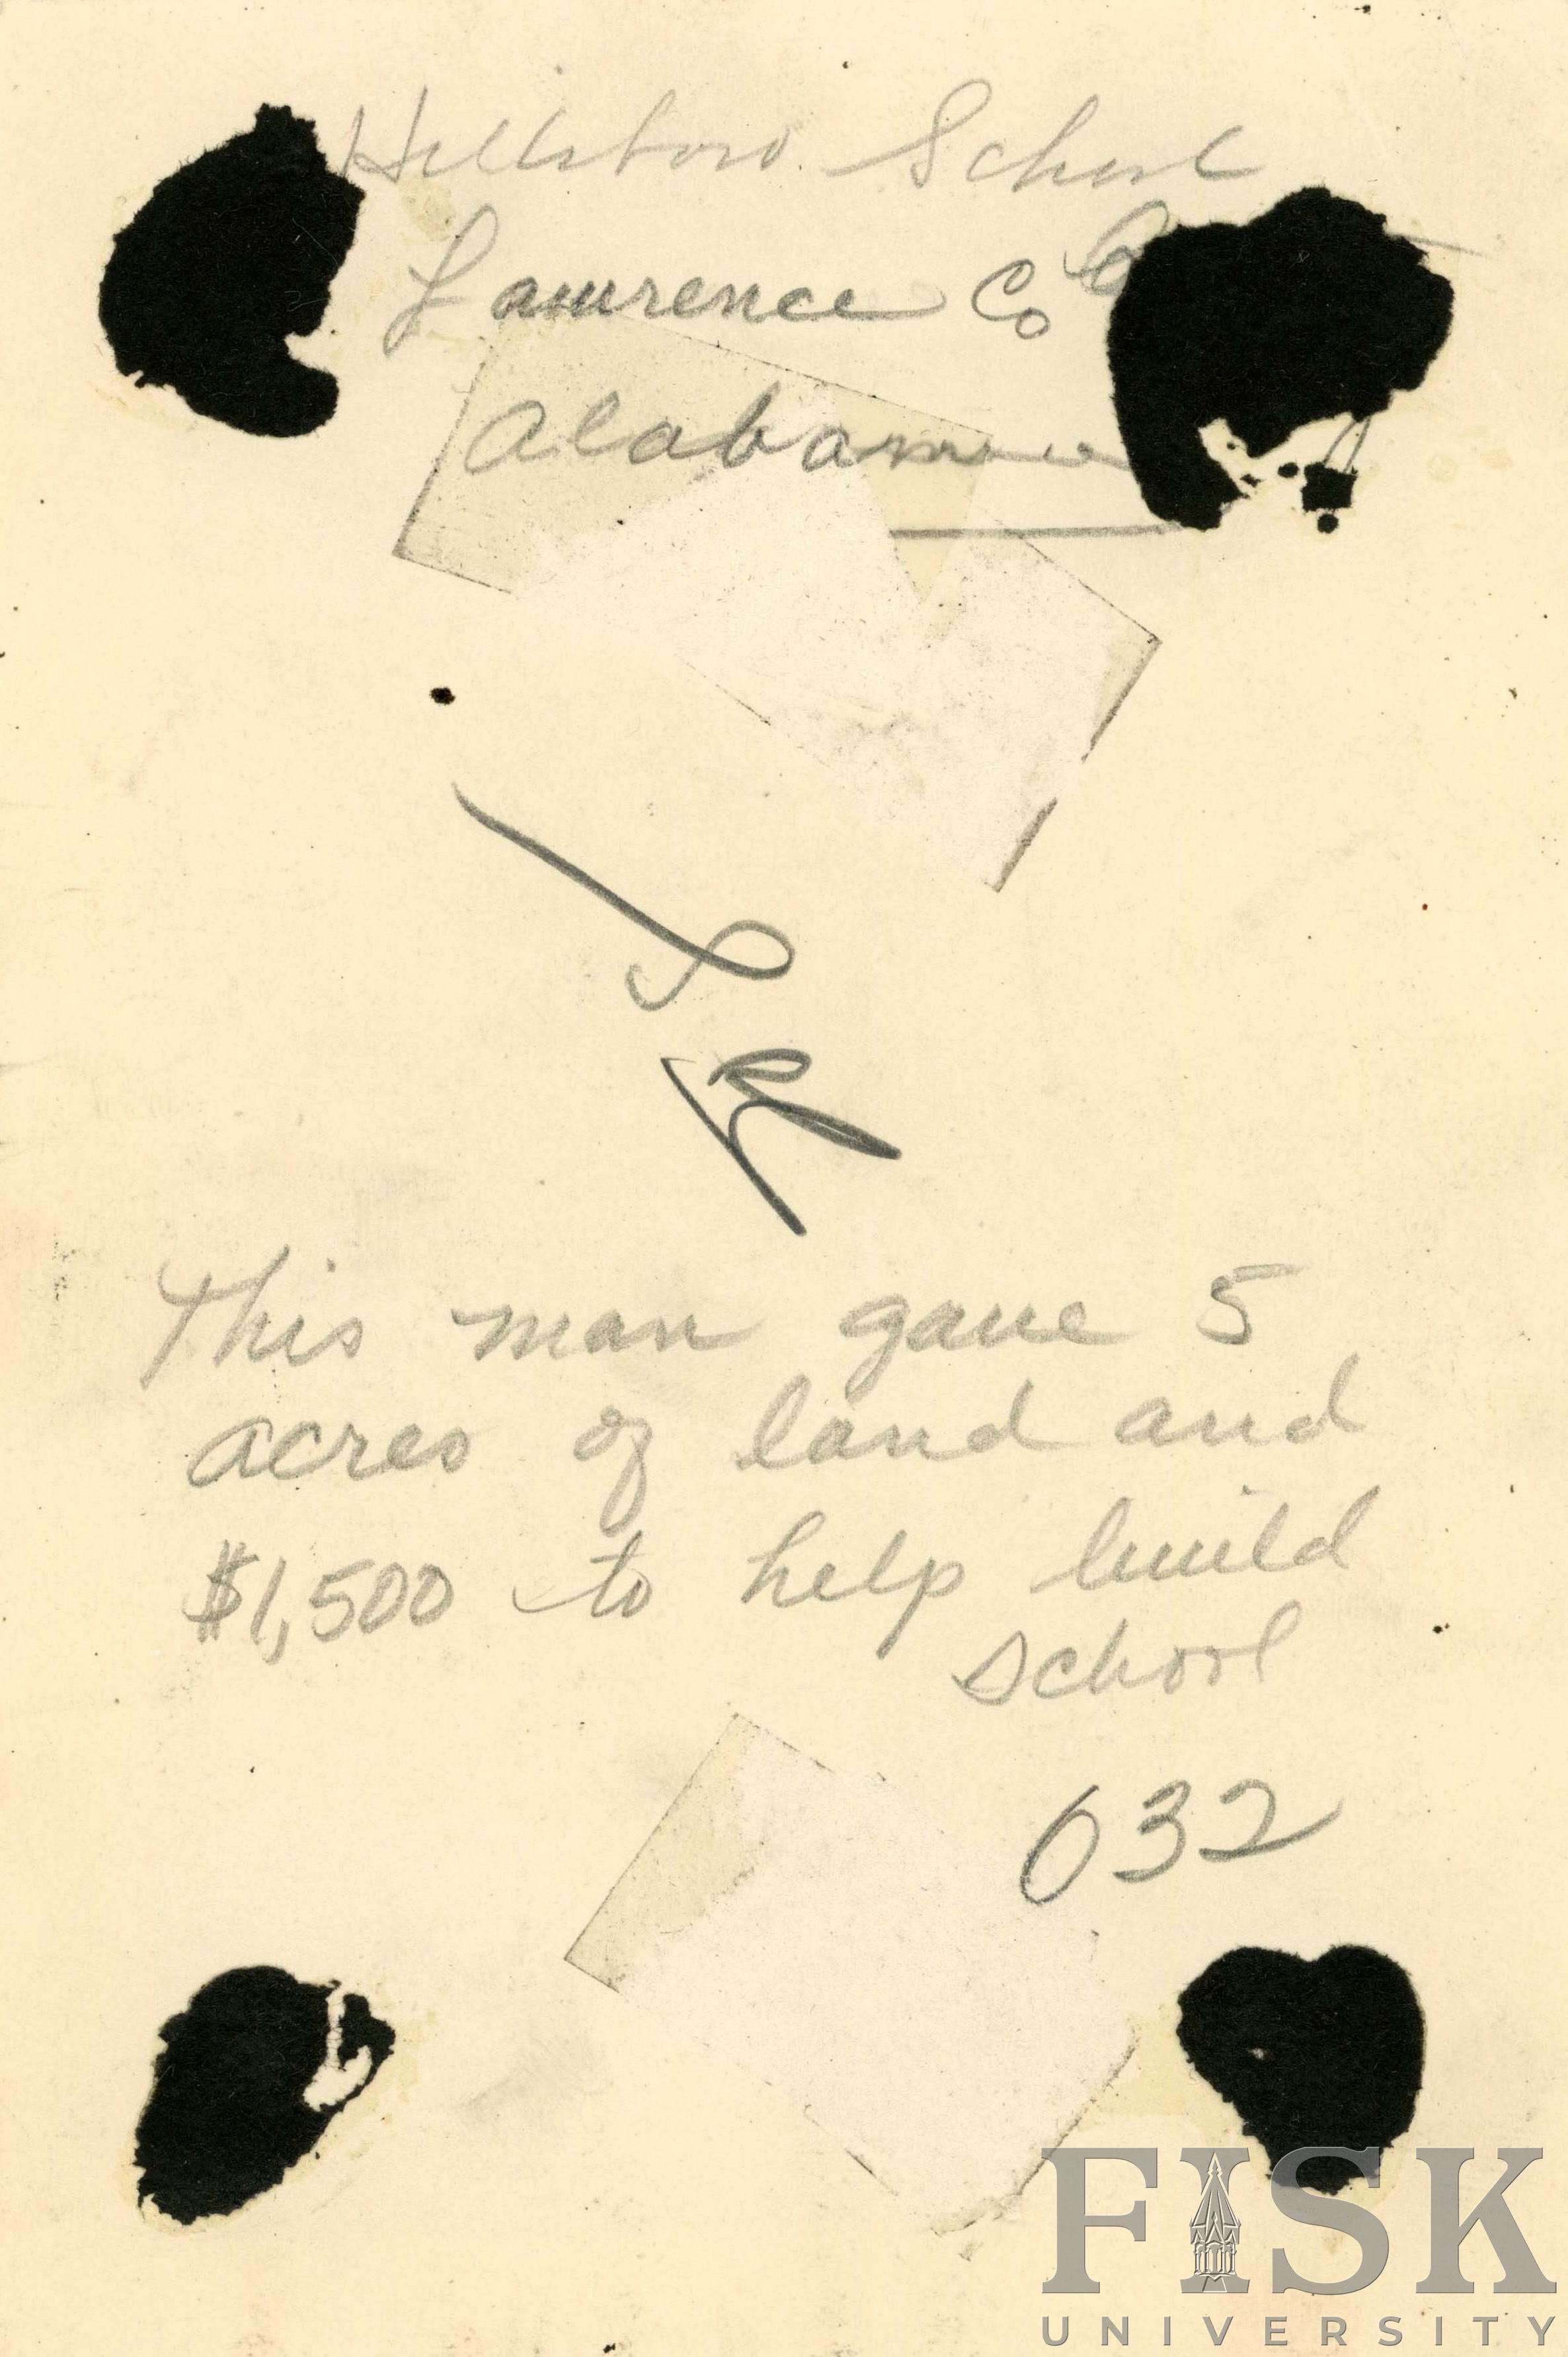 Hillsboro School
Lawrence Co
Alabama
This man gave 5
acres of land and
$1,500 to help build
school
032
FISK
UNIVERSITY